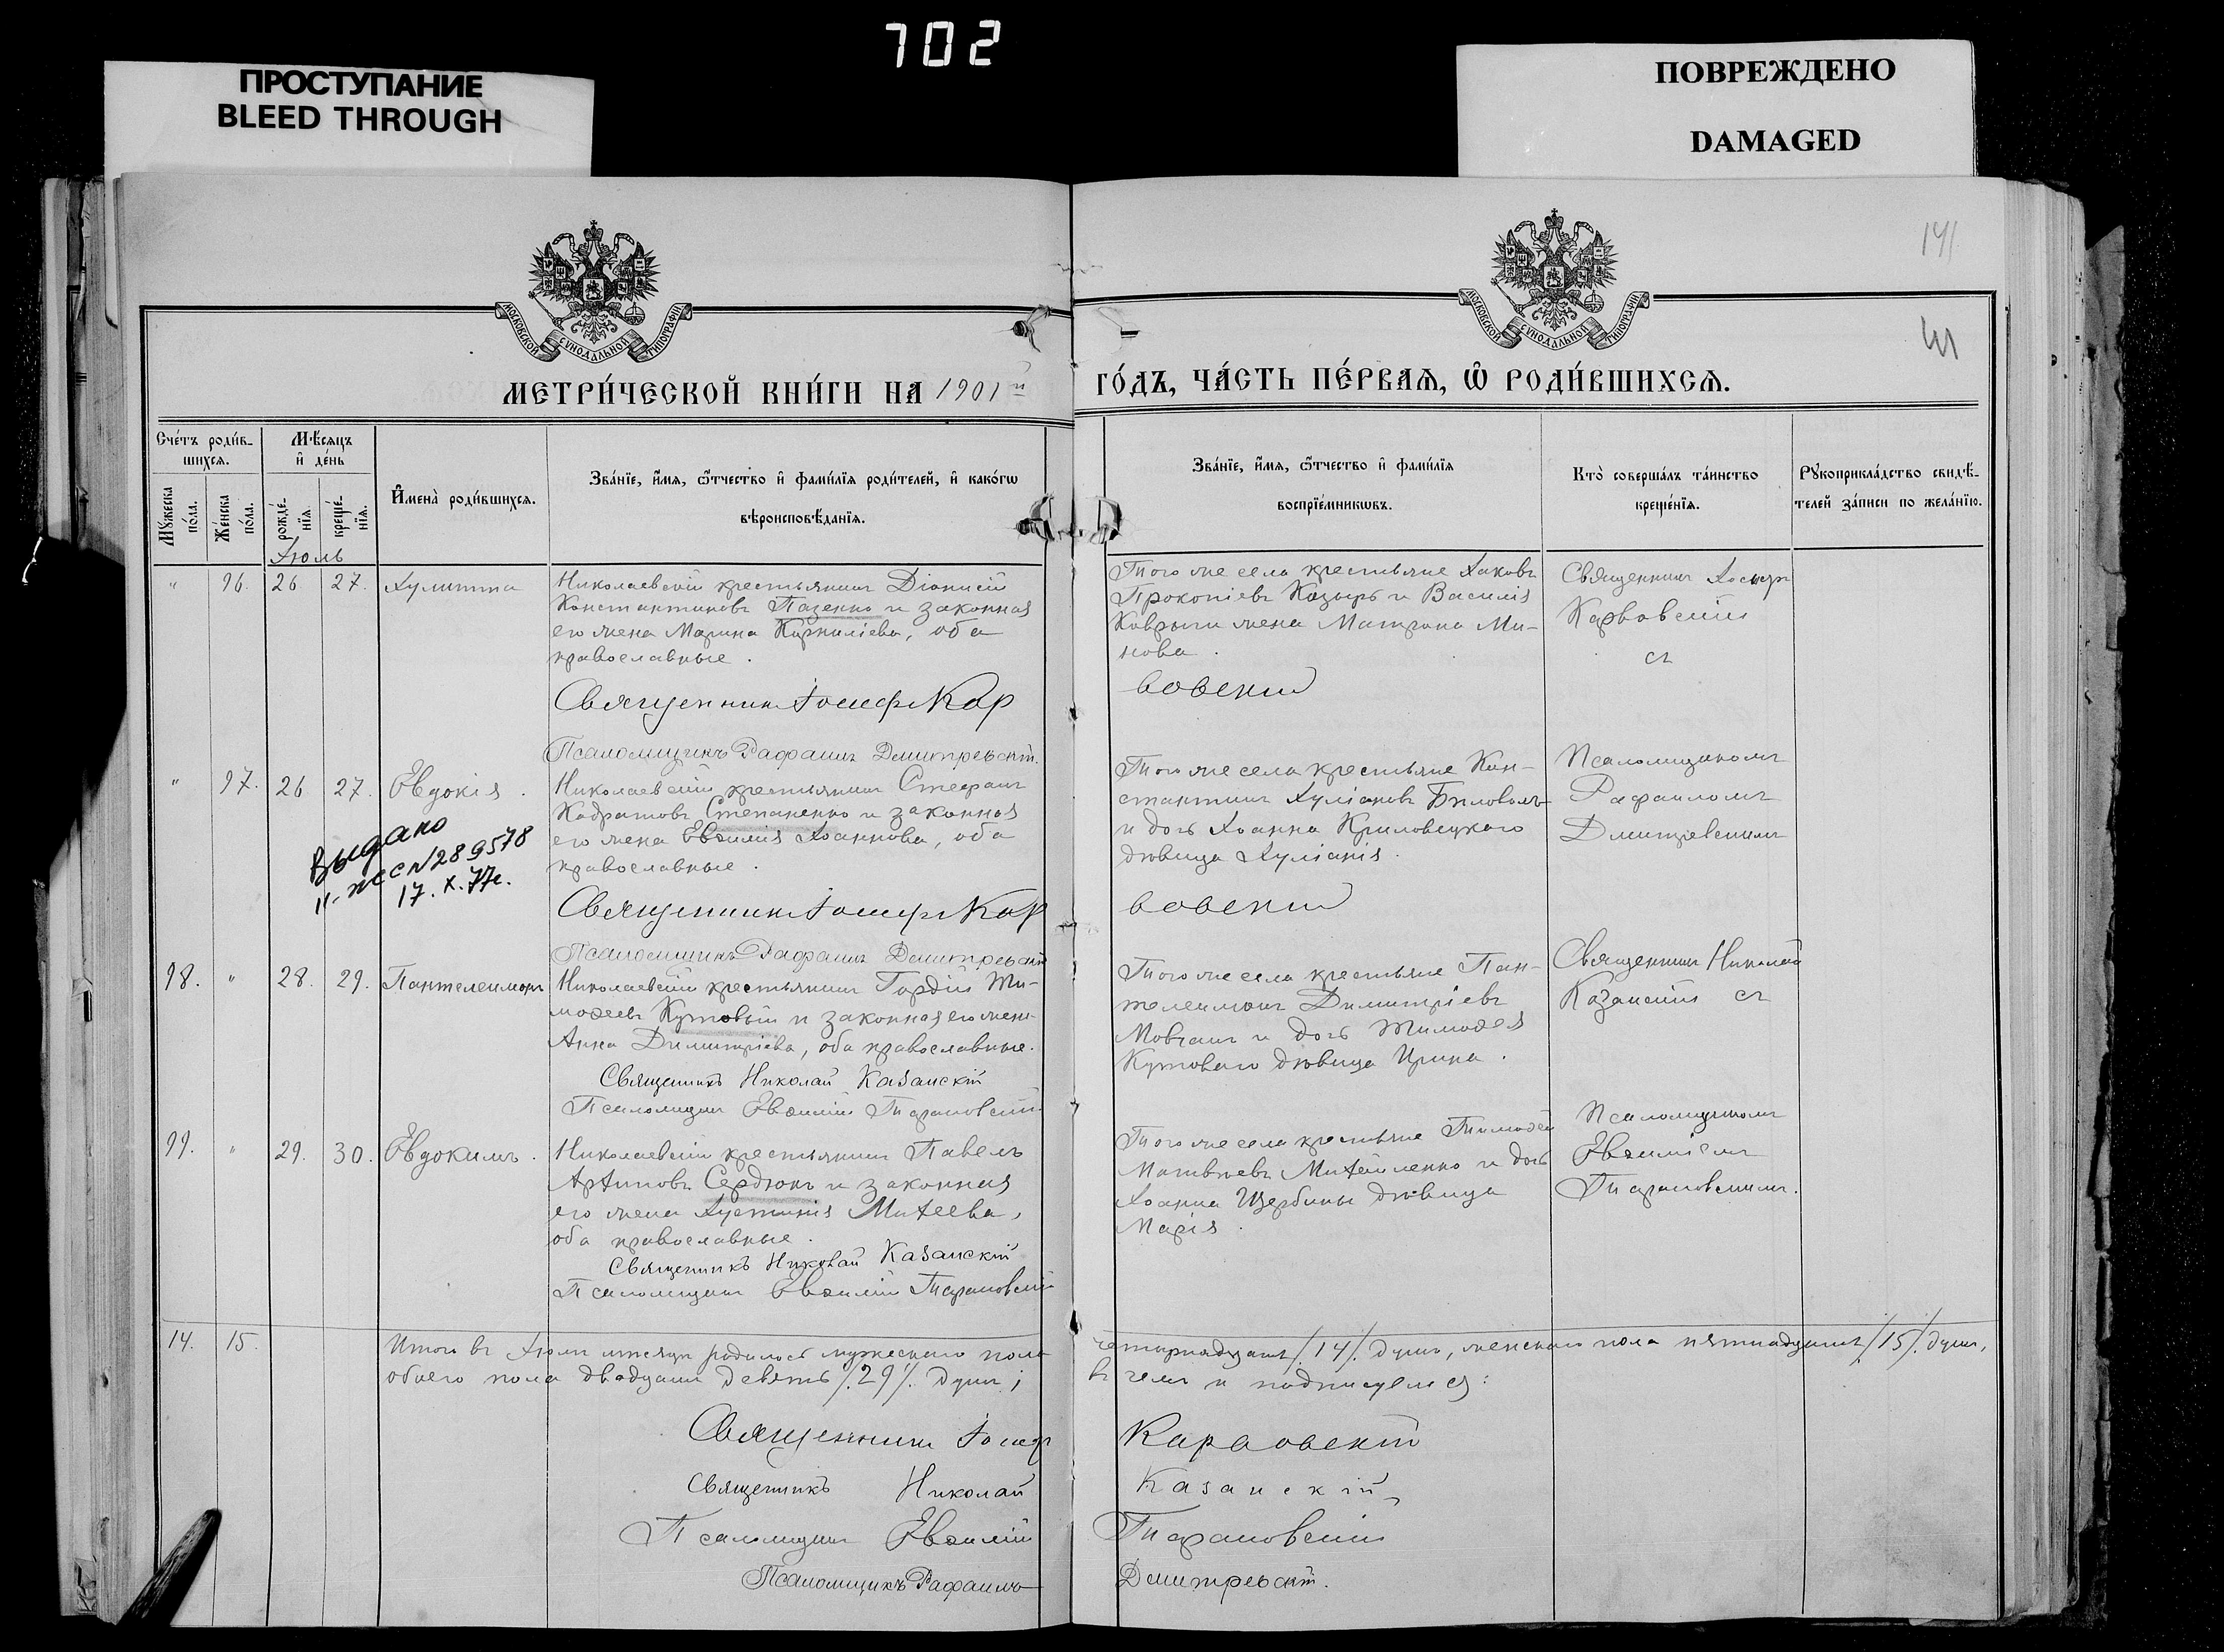 702
ПРОСТУПАНИЕ
BLEED THROUGH
ПОВРЕЖДЕНО
DAMAGED
141
МОСКОВСКОЙ СѴНОДАЛЬНОЙ ТИПОГРАФІИ
МОСКОВСКОЙ СѴНОДАЛЬНОЙ ТИПОГРАФІИ
МЕТРИ́ЧЕСКОЙ КНИ́ГИ НА 1901й
ГО́ДЪ, ЧА́СТЬ ПЕ́РВАѦ, Ѽ РОДИ́ВШИХСѦ.
Сче́тъ роди́в-
шихсѧ.
Мꙋжеска по́ла.
Же́нска по́ла.
Мѣ́сѧцъ
и҆ де́нь
рожде́-
нїѧ.
креще́-
нїѧ.
И҆мена̀ роди́вшихсѧ.
Зва́нїе, и҆́мѧ, ѻ҆́тчество и҆ фами́лїѧ роди́телей, и҆ како́гѡ
вѣроисповѣ́данїѧ.
Зва́нїе, и҆́мѧ, ѻ҆́тчество и҆ фами́лїѧ
воспрїе́мникѡвъ.
Кто̀ соверша́лъ та́инство
креще́нїѧ.
Рꙋкоприкла́дство свидѣ́-
телей за́писи по жела́нїю.
Іюль
" 96. 26 27. Іулитта
Николаевскій крестьянинъ Діонисій
Константиновъ Пазенко и законная
его жена Марина Корниліева, оба
православные.
Священникъ Іосифъ Кар
Псаломщикъ Рафаилъ Дмитревскій.
Того же села крестьяне Іаковъ
Прокопіевъ Козырь и Василія
Коврыги жена Матрона Ми-
нова.
вовскій
Священникъ Іосифъ
Карвовскій
съ
" 97. 26 27. Евдокія.
Николаевскій крестьянинъ Стефанъ
Кодратовъ Степаненко и законная
его жена Евѳимія Іоаннова, оба
православные.
Священникъ Іосифъ Кар
Псаломщикъ Рафаилъ Дмитревскій
выдано
17.X.77г.
Того же села крестьяне Кон-
стантинъ Іуліановъ Биловолъ
и дочь Іоанна Криловецкого
дѣвица Іуліанія.
вовскій
Псаломщикомъ
Рафаиломъ
Дмитревскимъ
98. " 28. 29. Пантелеимонъ
Николаевскій крестьянинъ Гордій Ти-
моѳеевъ Кутовый и законная его жена
Анна Димитріева, оба православные.
Священникъ Николай Казанскій
Псаломщикъ Евѳимій Тарановскій
Того же села крестьяне Пан-
телеимонъ Димитріевъ
Мовчанъ и дочь Тимоѳея
Кутоваго дѣвица Ирина.
Священникъ Николай
Казанскій съ
99. " 29. 30. Евдокимъ.
Николаевскій крестьянинъ Павелъ
Архиповъ Сердюкъ и законная
его жена Іустинія Михеева,
оба православные.
Священникъ Николай Казанскій
Псаломщикъ Евѳимій Тарановскій
Того же села крестьяне Тимоѳей
Матвѣевъ Михайленко и дочь
Іоанна Щербины дѣвица
Марія.
Псаломщикомъ
Евѳиміемъ
Тарановскимъ.
14. 15.
Итого въ Іюлѣ мѣсяцѣ родилось мужескаго пола
четырнадцать /.14/. душъ, женскаго пола пятнадцать /.15/. душъ,
обоего пола двадцать девять /.29/. душъ;
въ чемъ и подписуемся:
Священникъ Іосифъ Карвовскій
Священникъ Николай Казанскій
Псаломщикъ Евѳимій Тарановскій
Псаломщикъ Рафаилъ Дмитревскій.